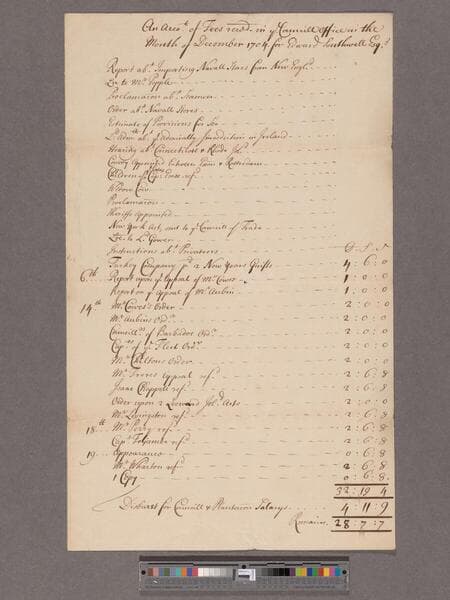 An Acco.t of Fees recvd. in ye Councill Office in the
Month of December 1704 for Edward Southwell Esq.r
Report abt. Importing Navall Stores from New Engld.
Lre to Mr. Popple
Proclamacon abt. Seamen
Order abt. Navall Stores
Estimate of Provisions for Sea
Ld. Admll. abt. ye Admiralty Jurisdiction in Ireland
Hearing abt. Connecticut & Rhode Isl.
Convoy Appointed between & Rotterdam
Children of Capt. ref.
Proclamacon
Sheriffs Appointed
New York Act, sent to ye Councill of Trade
Lre. to Ld. Gower
Instructions abt. Privateers
Turkey Company pd. 2 New Years Guifts 4 : 6 : 0
6th Report upon ye Appeal of Mr. Cowes 1 : 0 : 0
Report on ye Appeal of Mr. Aubin 1 : 0 : 0
14th Mr. Cowes's Order 2 : 0 : 0
Mr. Aubins Ordr. 2 : 0 : 0
Councill of Barbados Ordr. 2 : 0 : 0
Cap.ns of ye Fleet Ordr. 2 : 0 : 0
Mr. Chiltons Order 2 : 0 : 0
Mr. Freres Appeal ref. 2 : 6 : 8
Isaac Chappell ref. 2 : 6 : 8
Order upon 2 Leeward Isl.d Acts 4 : 0 : 0
Mr. Livingston ref. 2 : 6 : 8
18th Mr. Perry ref. 2 : 6 : 8
Capt. ref. 2 : 6 : 8
19 Appearance 0 : 6 : 8
Mr. Wharton ref. 2 : 6 : 8
1 Copy 0 : 6 : 8
32 : 19 : 4
Disburst for Councill & Plantacon Salarys 4 : 11 : 9
Remains 28 : 7 : 7